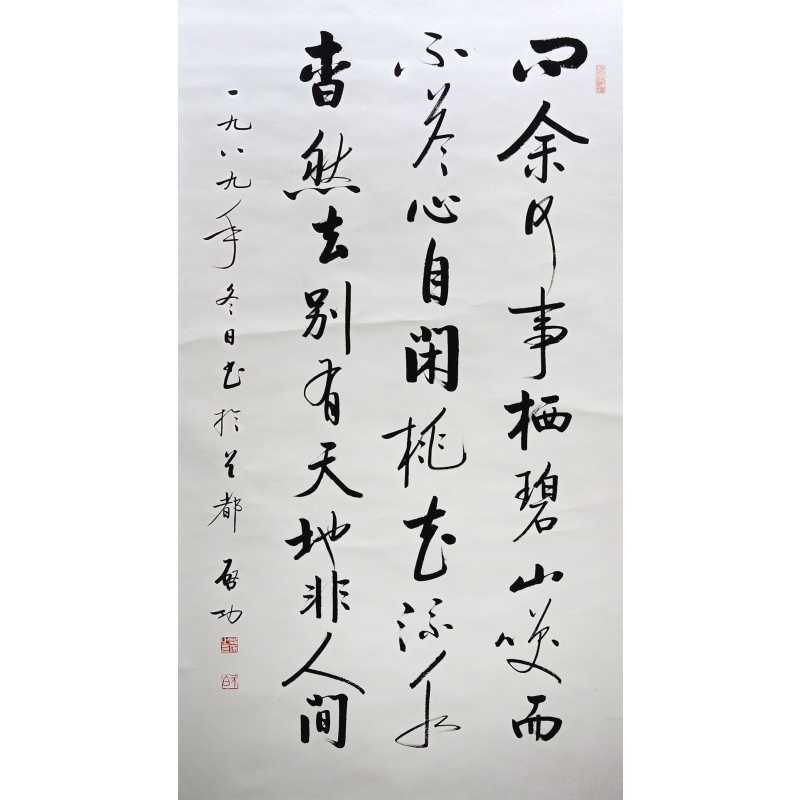 问余何事栖碧山咲而
不答心自闲桃花流水
杳然去别有天地非人间
一九八九年冬日书于首都 启功